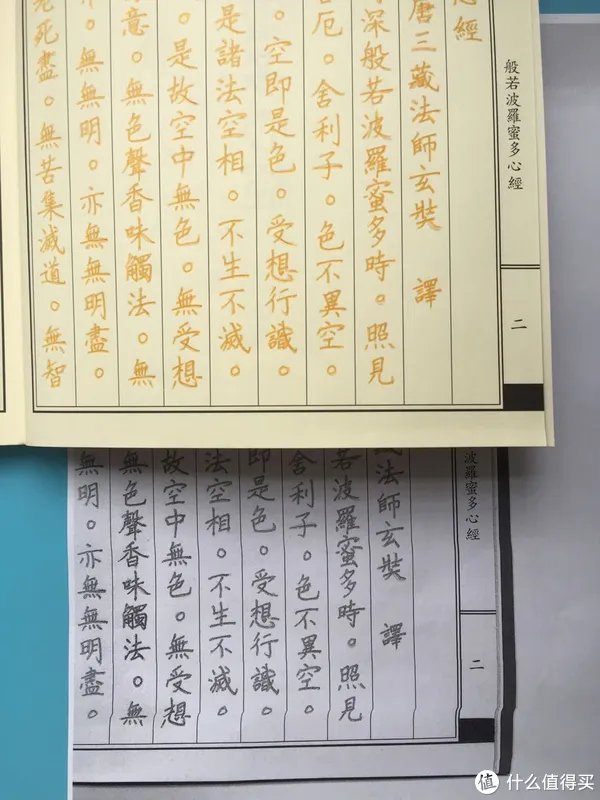 般若波羅蜜多心經
二
心經
唐三藏法師玄奘 譯
深般若波羅蜜多時。照見
苦厄。舍利子。色不異空。
。空即是色。受想行識。
是諸法空相。不生不滅。
。是故空中無色。無受想
意。無色聲香味觸法。無
。無無明。亦無無明盡。
老死盡。無苦集滅道。無智
波羅蜜多心經
二
藏法師玄奘 譯
若波羅蜜多時。照見
舍利子。色不異空。
即是色。受想行識。
法空相。不生不滅。
故空中無色。無受想
無色聲香味觸法。無
無明。亦無無明盡。
值 什么值得买